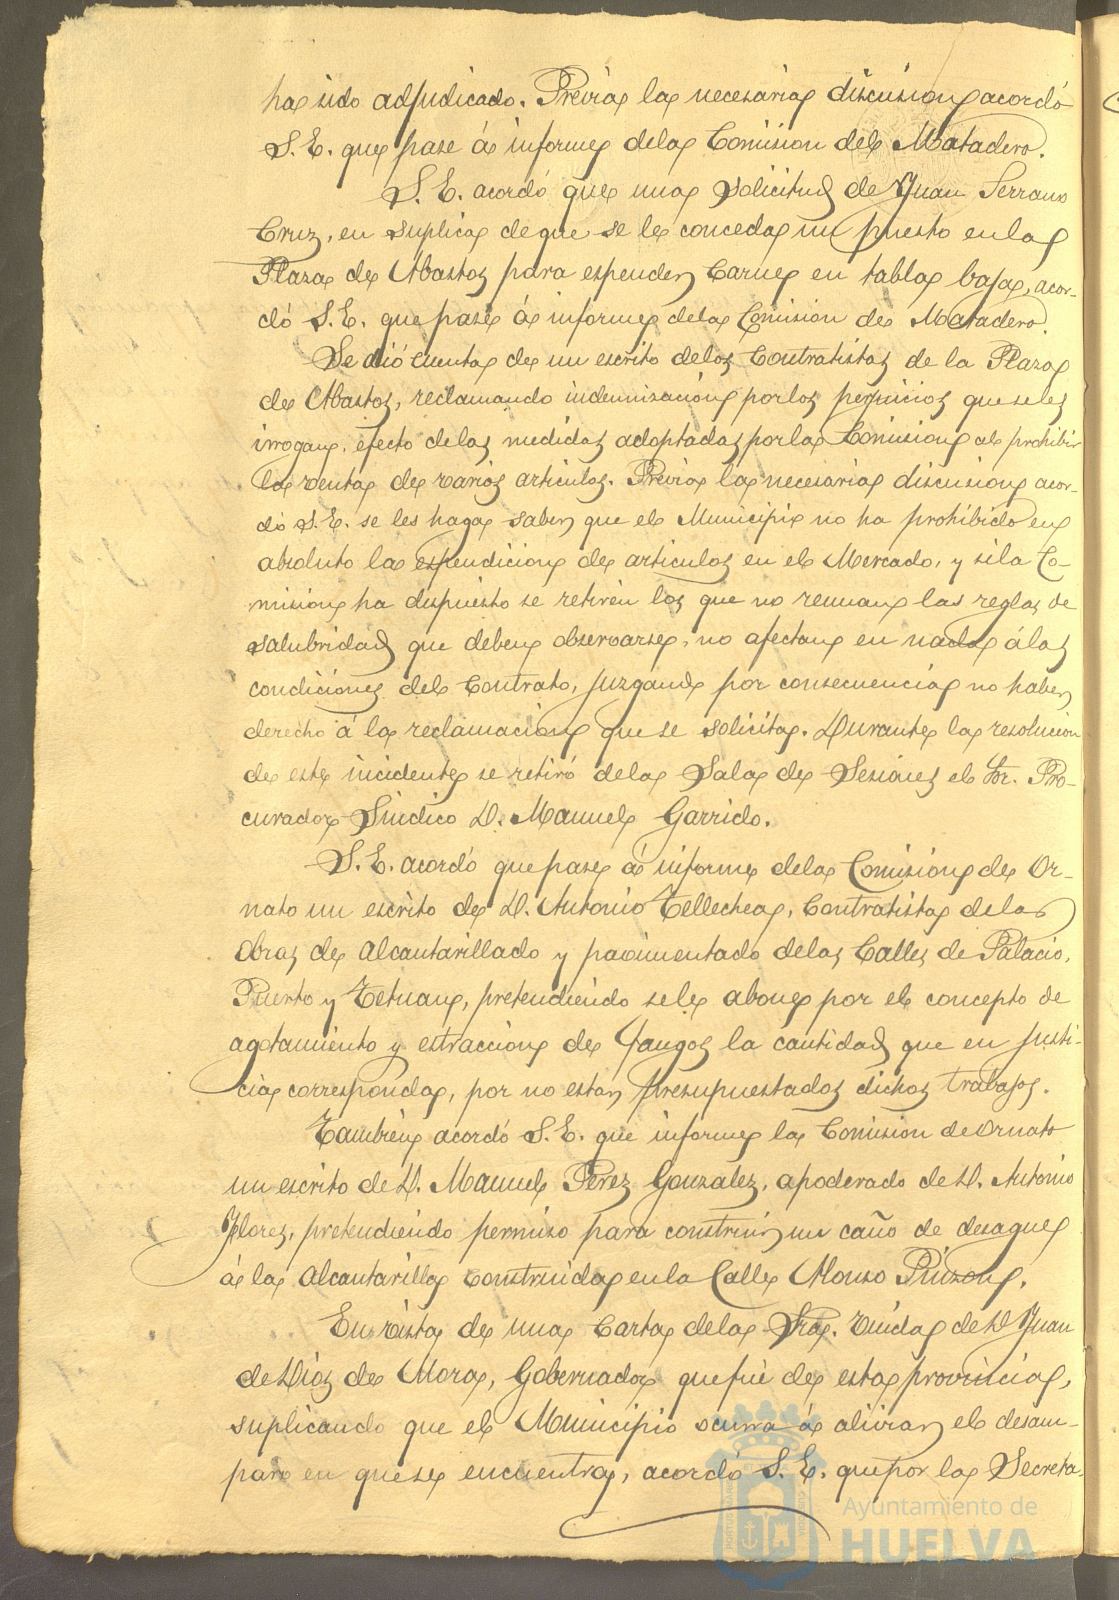 ha sido adjudicado. Prévia la necesaria discusion acordó
S. E. que pase á informe de la Comision del Matadero.
S. E. acordó que una solicitud de Juan Serrano
Cruz, en suplica de que se le conceda un puesto en la
Plaza de Abastos para espender Carnes en tabla baja, acor-
dó S. E. que pase á informe de la Comision de Matadero.
Se dió cuenta de un escrito de los Contratistas de la Plaza
de Abastos, reclamando indemnizacion por los perjuicios que se les
irrogan, efecto de las medidas adoptadas por la Comision al prohibir
la venta de varios articulos. Prévia la necesaria discusion acor-
dó S. E. se les haga saber que el Municipio no ha prohibido en
absoluto la espendicion de articulos en el Mercado, y si la Co-
mision ha dispuesto se retiren los que no reunan las reglas de
salubridad que deben observarse, no afectan en nada á las
condiciones del Contrato, juzgando por consecuencia no haber
derecho á la reclamacion que se solicita. Durante la resolucion
de este incidente se retiró de la Sala de Sesiones el Sr. Pro-
curador Sindico D. Manuel Garrido.
S. E. acordó que pase á informe de la Comision de Or-
nato un escrito de D. Antonio Tellechea, Contratista de las
obras de alcantarillado y pavimentado de las Calles de Palacio,
Puerto y Tetuan, pretendiendo se le abone por el concepto de
agotamiento y estraccion de fangos la cantidad que en justi-
cia corresponda, por no estar presupuestados dichos trabajos.
Tambien acordó S. E. que informe la Comision de Ornato
un escrito de D. Manuel Perez Gonzalez, apoderado de D. Antonio
Flores, pretendiendo permiso para construir un caño de desague
á la alcantarilla construida en la Calle Alonso Pinzon.
En vista de una Carta de la Sra. Viuda de D. Juan
de Dios de Mora, Gobernador que fué de esta provincia,
suplicando que el Municipio ocurra á aliviar el desam-
paro en que se encuentra, acordó S. E. que por la Secreta-
Ayuntamiento de
HUELVA